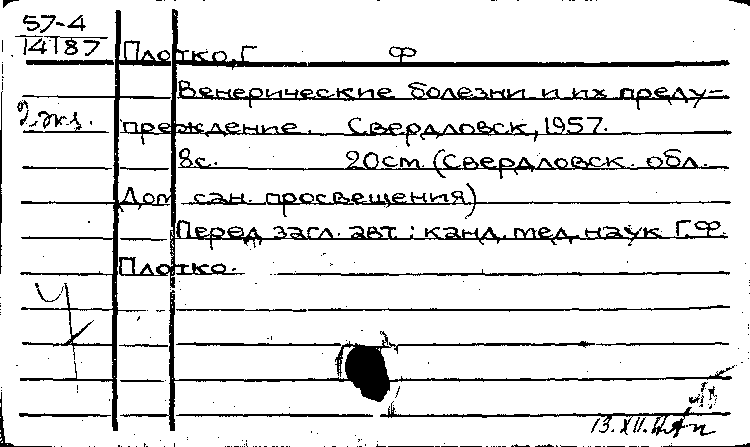 57-4
14187
Плотко, Г Ф
Венерические болезни и их преду-
2 экз.
преждение. Свердловск, 1957.
8с. 20см. (Свердловск. обл.
Дом сан. просвещения)
Перед загл. авт.: канд. мед. наук Г.Ф.
Плотко.
Ч
13.XII.